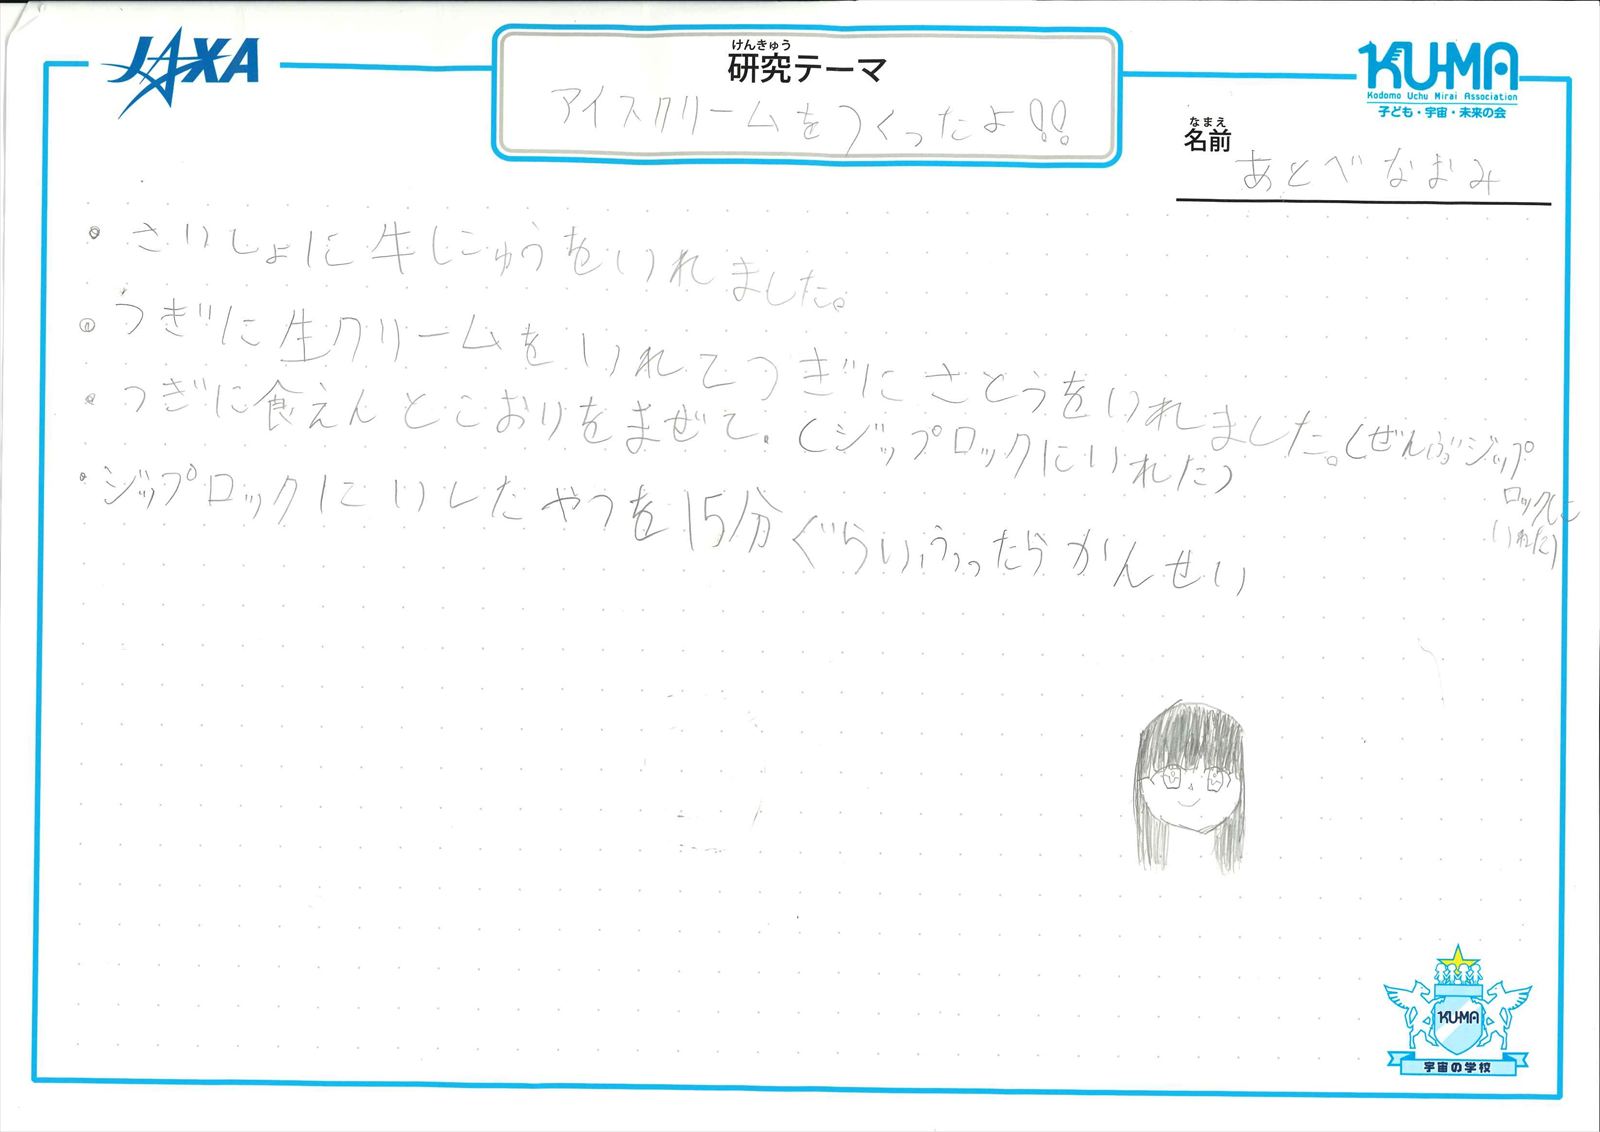 JAXA
けんきゅう
研究テーマ
アイスクリームをつくったよ!!
KU-MA
Kodomo Uchu Mirai Association
子ども・宇宙・未来の会
なまえ
名前
あとべなおみ
さいしょに牛にゅうをいれました。
つぎに生クリームをいれてつぎにさとうをいれました。(ぜんぶジップ
ロックに
いれた)
つぎに食えんとこおりをまぜて。(ジップロックにいれた)
ジップロックにいしたやつを15分ぐらいふったらかんせい
KU-MA
宇宙の学校